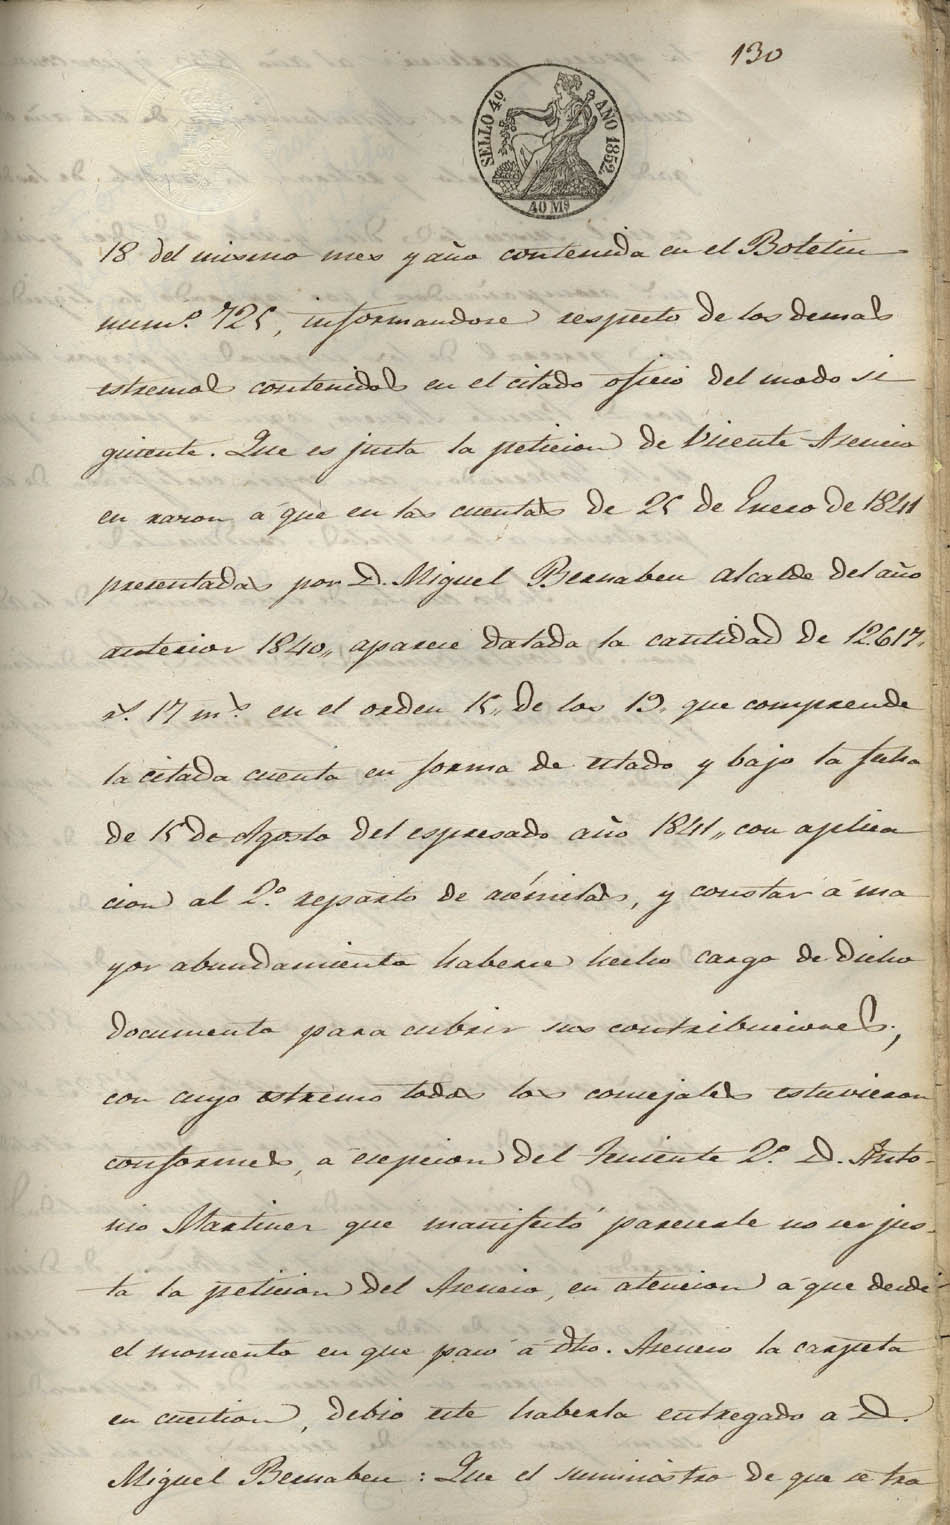 130
SELLO 4º AÑO 1852.
40 Ms
18 del mismo mes y año contenida en el Boletin
num.º 725, informandose respecto de los demas
estremos contenidos en el citado oficio del modo si
guiente. Que es justa la peticion de Vicente Asencio
en razon á que en las cuentas de 25 de Enero de 1841
presentadas por D. Miguel Bernabeu Alcalde del año
anterior 1840,, aparece datada la cantidad de 12.617.
r.s 17 m.s en el orden 15,, de los 19,, que comprende
la citada cuenta en forma de estado y bajo la fecha
de 15 de Agosto del espresado año 1841,, con aplica
cion al 2.º reparto de acémilas, y constar á ma
yor abundamiento haberse hecho cargo de dicho
documento para cubrir sus contribuciones;
con cuyo estremo todos los concejales estuvieron
conformes, á escepcion del Teniente 2.º D. Anto-
nio Martinez que manifestó parecerle no ser jus-
ta la peticion del Asencio, en atencion á que desde
el momento en que pasó á dho. Asencio la carpeta
en cuestion, debio este haberla entregado á D.
Miguel Bernabeu: Que el suministro de que se tra